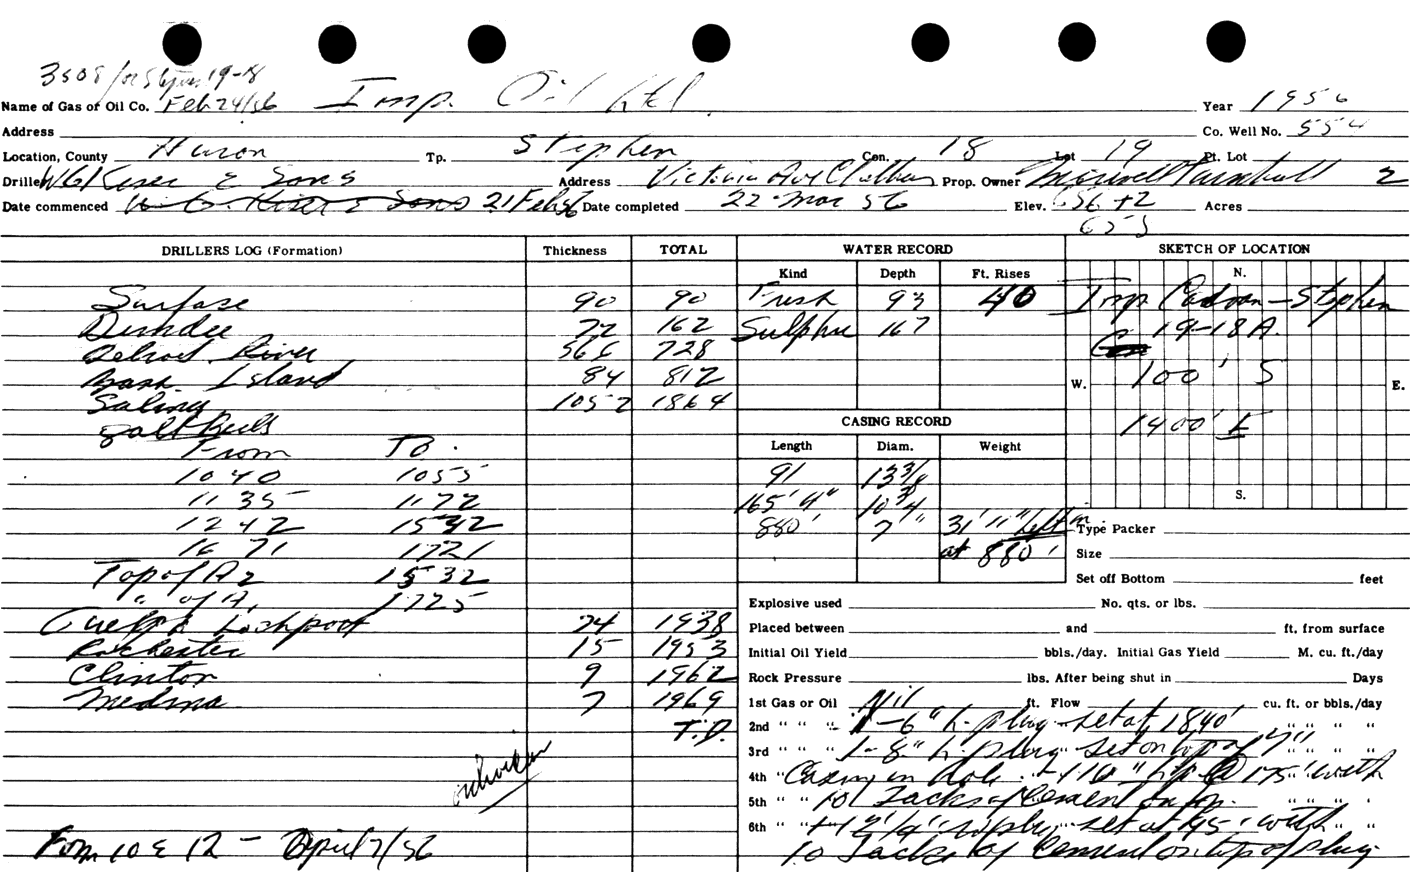 3508 for Stephen 19-18
Name of Gas or Oil Co. Feb 24/56 Imp. Oil Ltd. Year 1956
Address Co. Well No. 554
Location, County Huron Tp. Stephen Con. 18 Lot 19 Pt. Lot
Driller W G Kiser & Sons Address Victoria Ave Chatham Prop. Owner Maxwell Turnbull 2
Date commenced W. G. Kiser & Sons 21 Feb 56 Date completed 22 Mar 56 Elev. 656 +2 Acres
655
DRILLERS LOG (Formation) Thickness TOTAL WATER RECORD SKETCH OF LOCATION
Kind Depth Ft. Rises N.
Surfase 90 90 Fresh 93 40 Imp Stephen
Dundee 72 162 Sulphur 167 19-18 A.
Detroit River 566 728 Con
Bass Island 84 812 W. 100' S E.
Salina 1052 1864
Salt Beds CASING RECORD 1400' E
From To. Length Diam. Weight
1040 1055 91 13 3/8
1135 1172 165' 4" 10 3/4 S.
1242 1542 880' 7" 31' 11" Left in Type Packer
1671 1721 at 880' Size
Top of A2 1532 Set off Bottom feet
" of A1 1725 Explosive used No. qts. or lbs.
Guelph Lockport 74 1938 Placed between and ft. from surface
Rochester 15 1953 Initial Oil Yield bbls./day. Initial Gas Yield M. cu. ft./day
Clinton 9 1962 Rock Pressure lbs. After being shut in Days
Medina 7 1969 1st Gas or Oil Nil ft. Flow cu. ft. or bbls./day
T.D. 2nd " " " 1-6" h. plug set at 1840' " " " "
3rd " " " 1-8" h. plug set on top of 7" " " " "
4th " Casing in hole 1 10" @ 175' with
5th " " 10 Sacks of Cement on top. " " " "
6th " " 1 plug set at 95' with " "
Form 10 & 12 - April 7/56 10 Sacks of Cement on top of plug